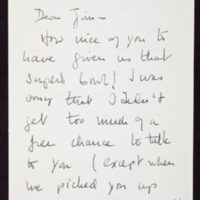 Dear Jim –
How nice of you to
have given us that
bowl! I was
sorry that I didn't
get too much of a
free chance to talk
to you (except when
we picked you up